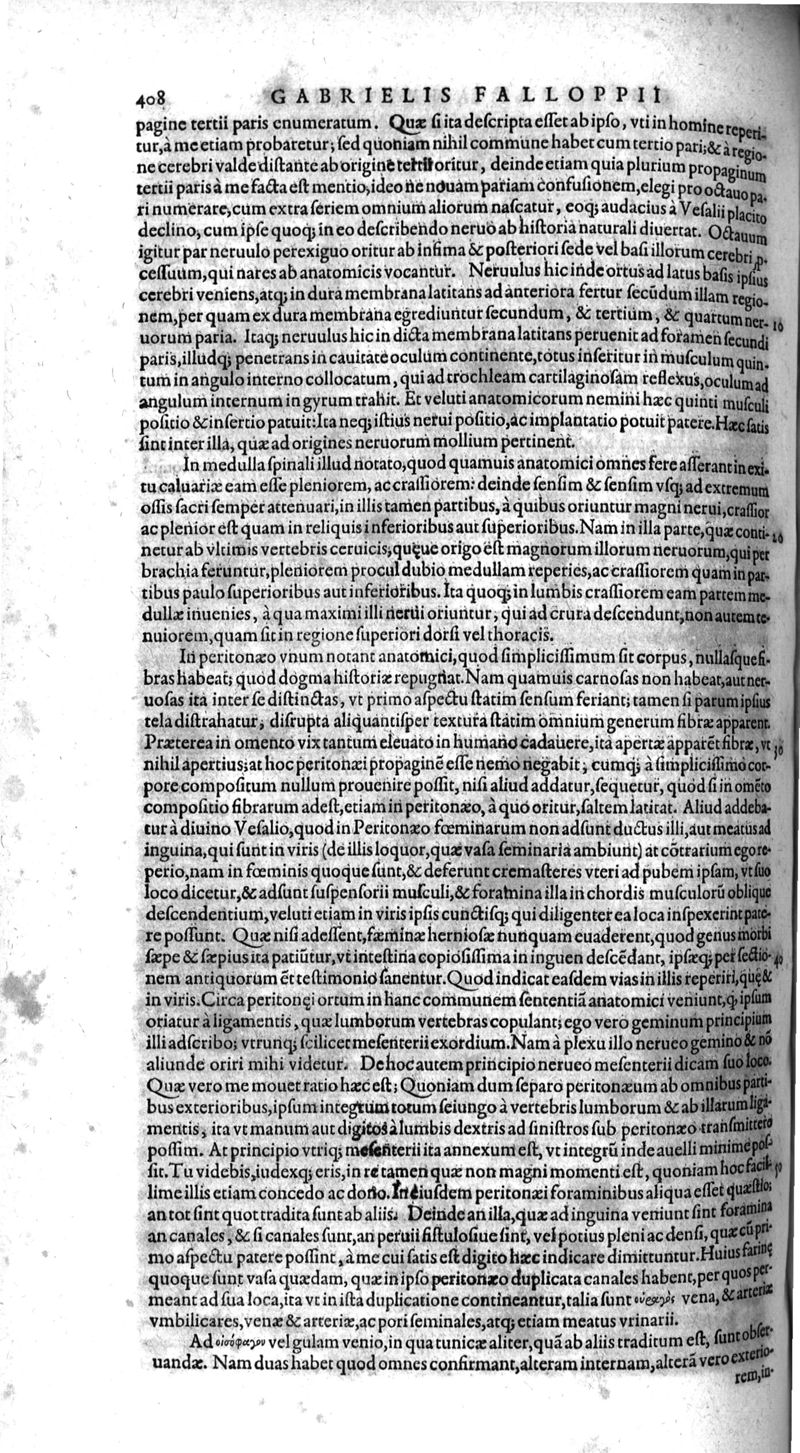 408 GABRIELIS FALLOPPII
pagine tertii paris enumeratum. Quæ ſi ita deſcripta eſſet ab ipſo, vti in homine reperi-
tur, à me etiam probaretur; ſed quoniam nihil commune habet cum tertio pari; & à regio-
ne cerebri valde diſtante ab origine tertii oritur, deinde etiam quia plurium propaginum
tertii paris à me facta eſt mentio, ideo ne nouam pariam confuſionem, elegi pro octauo pa-
ri numerare, cum extra ſeriem omnium aliorum naſcatur, eoq; audacius à Veſalii placito
declino, cum ipſe quoq; in eo deſcribendo neruo ab hiſtoria naturali diuertat. Octauum
igitur par neruulo perexiguo oritur ab infima & poſteriori ſede vel baſi illorum cerebri p.
ceſſuum, qui nares ab anatomicis vocantur. Neruulus hic inde ortus ad latus baſis ipſius
cerebri veniens, atq; in dura membrana latitans ad anteriora fertur ſecūdum illam regio-
nem, per quam ex dura membrana egrediuntur ſecundum, & tertium, & quartum ner- 10
uorum paria. Itaq; neruulus hic in dicta membrana latitans peruenit ad foramen ſecundi
paris, illudq; penetrans in cauitate oculum continente, totus inſeritur in muſculum quin-
tum in angulo interno collocatum, qui ad trochleam cartilaginoſam reflexus, oculum ad
angulum internum in gyrum trahit. Et veluti anatomicorum nemini hæc quinti muſculi
poſitio & inſertio patuit: Ita neq; iſtius nerui poſitio, ac implantatio potuit patere. Hæc ſatis
ſint inter illa, quæ ad origines neruorum mollium pertinent.
In medulla ſpinali illud notato, quod quamuis anatomici omnes fere aſſerant in exi-
tu caluariæ eam eſſe pleniorem, ac craſſiorem: deinde ſenſim & ſenſim vſq; ad extremum
oſſis ſacri ſemper attenuari, in illis tamen partibus, à quibus oriuntur magni nerui, craſſior
ac plenior eſt quam in reliquis inferioribus aut ſuperioribus. Nam in illa parte, quæ conti- 20
netur ab vltimis vertebris ceruicis, quęue origo eſt magnorum illorum neruorum, qui per
brachia feruntur, pleniorem procul dubio medullam reperies, ac craſſiorem quam in par-
tibus paulo ſuperioribus aut inferioribus. Ita quoq; in lumbis craſſiorem eam partem me-
dullæ inuenies, à qua maximi illi nerui oriuntur, qui ad crura deſcendunt, non autem te-
nuiorem, quam ſit in regione ſuperiori dorſi vel thoracis.
In peritonæo vnum notant anatomici, quod ſimpliciſſimum ſit corpus, nullaſque fi-
bras habeat; quod dogma hiſtoriæ repugnat. Nam quamuis carnoſas non habeat, aut ner-
uoſas ita inter ſe diſtinctas, vt primo aſpectu ſtatim ſenſum feriant; tamen ſi parum ipſius
tela diſtrahatur, diſrupta aliquantiſper textura ſtatim omnium generum fibræ apparent.
Præterea in omento vix tantum eleuato in humano cadauere, ita apertæ apparēt fibræ, vt 30
nihil apertius; at hoc peritonæi propaginē eſſe nemo negabit, cumq; à ſimpliciſſimo cor-
pore compoſitum nullum prouenire poſſit, niſi aliud addatur, ſequetur, quod ſi in omēto
compoſitio fibrarum adeſt, etiam in peritonæo, à quo oritur, ſaltem latitat. Aliud addeba-
tur à diuino Veſalio, quod in Peritonæo fœminarum non adſunt ductus illi, aut meatus ad
inguina, qui ſunt in viris (de illis loquor, quæ vaſa ſeminaria ambiunt) at cōtrarium ego re-
perio, nam in fœminis quoque ſunt, & deferunt cremaſteres vteri ad pubem ipſam, vt ſuo
loco dicetur, & adſunt ſuſpenſorii muſculi, & foramina illa in chordis muſculorū oblique
deſcendentium, veluti etiam in viris ipſis cunctiſq; qui diligenter ea loca inſpexerint pate-
re poſſunt. Quæ niſi adeſſent, fæminæ hernioſæ nunquam euaderent, quod genus morbi
ſæpe & ſæpius ita patiūtur, vt inteſtina copioſiſſima in inguen deſcēdant, ipſæq; per ſectio- 40
nem antiquorum ēt teſtimonio ſanentur. Quod indicat eaſdem vias in illis reperiri, quę &
in viris. Circa peritonęi ortum in hanc communem ſententiā anatomici veniunt, q, ipſum
oriatur à ligamentis, quæ lumborum vertebras copulant; ego vero geminum principium
illi adſcribo; vtrunq; ſcilicet meſenterii exordium. Nam à plexu illo nerueo gemino & nō
aliunde oriri mihi videtur. De hoc autem principio nerueo meſenterii dicam ſuo loco.
Quæ vero me mouet ratio hæc eſt; Quoniam dum ſeparo peritonæum ab omnibus parti-
bus exterioribus, ipſum integrum totum ſeiungo à vertebris lumborum & ab illarum liga-
mentis, ita vt manum aut digitos à lumbis dextris ad ſiniſtros ſub peritonæo tranſmittere
poſſim. At principio vtriq; meſenterii ita annexum eſt, vt integrū inde auelli minime poſ-
ſit. Tu videbis, iudexq; eris, in re tamen quæ non magni momenti eſt, quoniam hoc facil- 50
lime illis etiam concedo ac dono. In eiuſdem peritonæi foraminibus aliqua eſſet quæſtio;
an tot ſint quot tradita ſunt ab aliis. Deinde an illa, quæ ad inguina veniunt ſint foramina
an canales, & ſi canales ſunt, an peruii fiſtuloſiue ſint, vel potius pleni ac denſi, quæ cū pri-
mo aſpectu patere poſſint, à me cui ſatis eſt digito hæc indicare dimittuntur. Huius farinę
quoque ſunt vaſa quædam, quæ in ipſo peritonæo duplicata canales habent, per quos per-
meant ad ſua loca, ita vt in iſta duplicatione contineantur, talia ſunt οὐραχὸς vena, & arteriæ
vmbilicares, venæ & arteriæ, ac pori ſeminales, atq; etiam meatus vrinarii.
Ad οἰσοφαγον vel gulam venio, in qua tunicæ aliter, quā ab aliis traditum eſt, ſunt obſer-
uandæ. Nam duas habet quod omnes confirmant, alteram internam, alterā vero exterio-
rem, in-